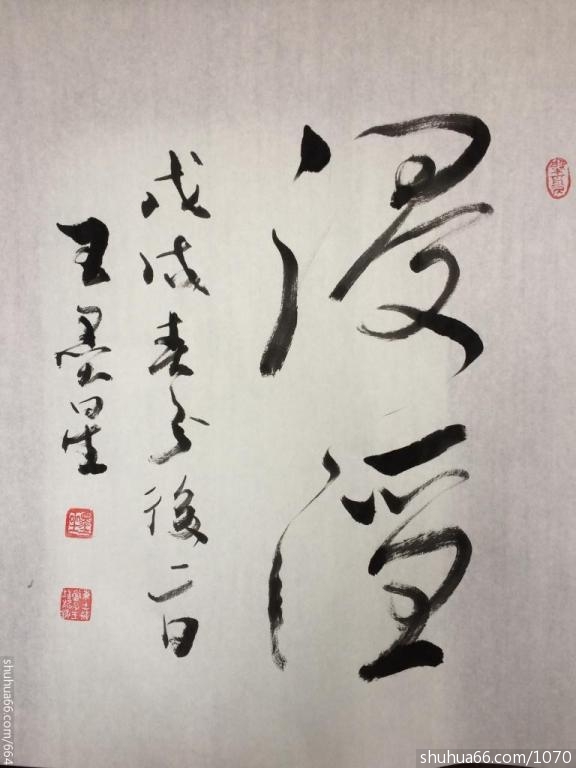 浸淫
戊戌春分後二日
王墨星
shuhua66.com/664
shuhua66.com/1070